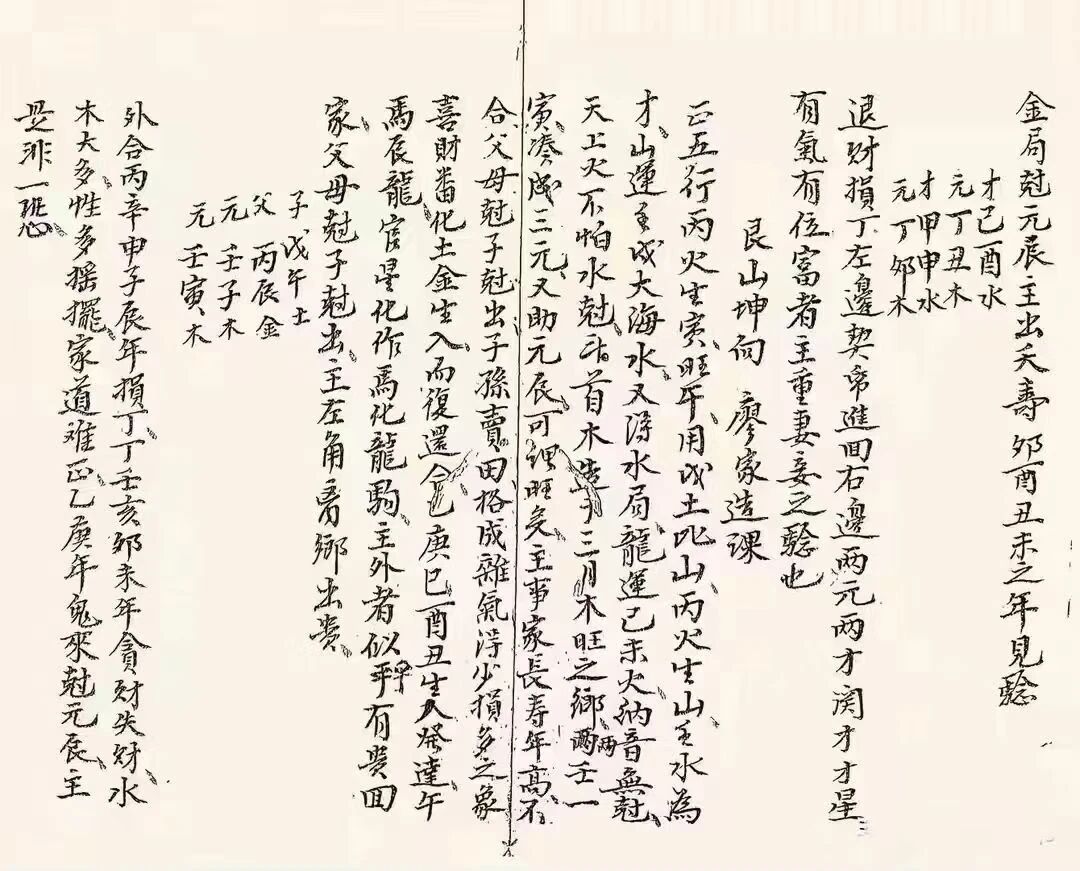 金局尅元辰主出夭壽卯酉丑未之年見驗
才己酉水
元丁丑木
才甲申水
元丁卯木
退財損丁左邊契帛進回右邊兩元兩才關才才星
有氣有位富者主重妻妾之驗也
艮山坤向 廖家造課
正五行丙火生寅旺午用戊土此山丙火生山壬水為
才山運壬戌大海水又得水局龍運己未火納音無尅
天上火不怕水尅首木造于三月木旺之鄉兩壬一
寅湊成三元又助元辰可謂旺矣主事家長寿年高不
合父母尅子尅出子孫賣田格成雜氣得少損多之象
喜財番化土金生入而復還合色庚巳酉丑生人發達午
馬辰龍官星化作馬化龍駒主外者似乎有贵回
家父母尅子尅出主左角离鄉出贵
子戊午土
父丙辰金
元壬子木
元壬寅木
外合丙辛申子辰年損丁丁壬亥卯未年貪財失財水
木大多性多摇擺家道难正乙庚年鬼來尅元辰主
是非一班